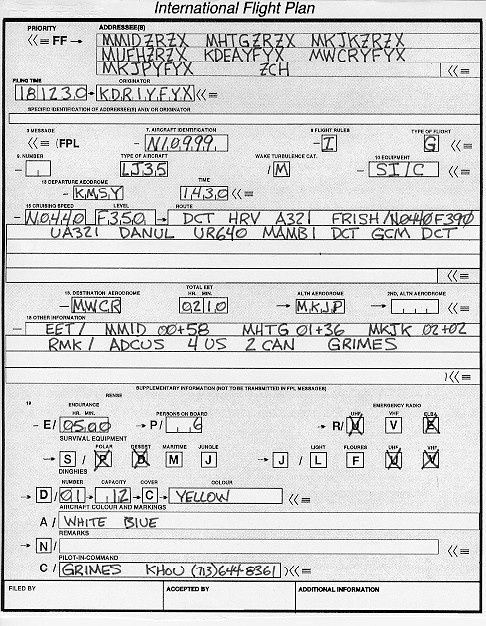 International Flight Plan
PRIORITY ADDRESSEE(S)
<<≡ FF → MMIDZRZX MHTGZRZX MKJKZRZX
MUFHZRZX KDEAYFYX MWCRYFYX
MKJPYFYX ZCH <<≡
FILING TIME ORIGINATOR
181230 → KDRIYFYX <<≡
SPECIFIC IDENTIFICATION OF ADDRESSEE(S) AND/OR ORIGINATOR
3 MESSAGE 7. AIRCRAFT IDENTIFICATION 8 FLIGHT RULES TYPE OF FLIGHT
<<≡ (FPL – N10999 – I G <<≡
9. NUMBER TYPE OF AIRCRAFT WAKE TURBULENCE CAT. 10 EQUIPMENT
– LJ35 / M – SI/C <<≡
13 DEPARTURE AEODROME TIME
– KMSY 1430 <<≡
15 CRUISING SPEED LEVEL ROUTE
– N0440 F350 → DCT HRV A321 FRISH/N0440F390
UA321 DANUL UR640 MAMBI DCT GCM DCT
<<≡
TOTAL EET
16. DESTINATION AERODROME HR. MIN. ALTN AERODROME 2ND. ALTN AERODROME
– MWCR 0210 → MKJP → <<≡
18 OTHER INFORMATION
– EET/ MMID 00+58 MHTG 01+36 MKJK 02+02
RMK/ ADCUS 4 US 2 CAN GRIMES
)<<≡
SUPPLEMENTARY INFORMATION (NOT TO BE TRANSMITTED IN FPL MESSAGES)
19 ENDURANCE EMERGENCY RADIO
HR. MIN. PERSONS ON BOARD UHF VHF ELBA
– E/ 0500 → P/ 6 → R/ U V E
SURVIVAL EQUIPMENT
POLAR DESERT MARITIME JUNGLE LIGHT FLOURES UHF VHF
→ S / P D M J → J / L F U V
DINGHIES
NUMBER CAPACITY COVER COLOUR
→ D / 01 → 12 → C → YELLOW <<≡
AIRCRAFT COLOUR AND MARKINGS
A / WHITE BLUE
REMARKS
→ N / <<≡
PILOT-IN-COMMAND
C / GRIMES KHOU (713)644-8361 )<<≡
FILED BY ACCEPTED BY ADDITIONAL INFORMATION